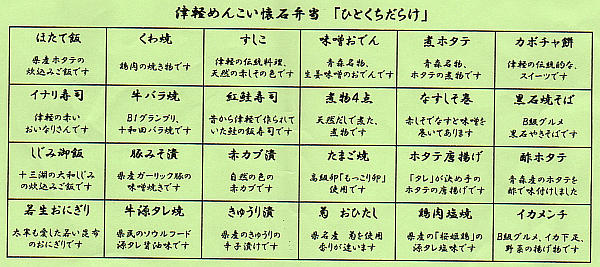 津軽めんこい懐石弁当 「ひとくちだらけ」
ほたて飯
県産ホタテの
炊込みご飯です
くわ焼
鶏肉の焼き物です
すしこ
津軽の伝統料理、
天然の赤しその色です
味噌おでん
青森名物、
生姜味噌のおでんです
煮ホタテ
青森名物、
ホタテの煮物です
カボチャ餅
津軽の伝統的な、
スイーツです
イナリ寿司
津軽の赤い
おいなりさんです
牛バラ焼
B1グランプリ、
十和田バラ焼です
紅鮭寿司
昔から津軽で作られて
いた鮭の飯寿司です
煮物4点
天然だしで煮た、
煮物です
なすしそ巻
赤しそでなすと味噌を
巻いてあります
黒石焼そば
B級グルメ
黒石やきそばです
しじみ御飯
十三湖の大和しじみ
の炊込み飯です
豚みそ漬
県産ガーリック豚の
味噌焼きです
赤カブ漬
自然の色の
赤カブです
たまご焼
高級卵「もっこり卵」
使用です
ホタテ唐揚
「タレ」が決め手の
ホタテの唐揚げです
酢ホタテ
青森産のホタテを
酢で味付けしました
若生おにぎり
太宰も愛した若い昆布
のおにぎりです
牛源タレ焼
県民のソウルフード
源タレ醤油味です
きゅうり漬
県産のきゅうりの
辛子漬けです
菊 おひたし
県名産 菊を使用
香りが違います
鶏肉塩焼
県産の「桜姫鶏」の
源タレ塩味です
イカメンチ
B級グルメ、イカ下足、
野菜の揚げ物です